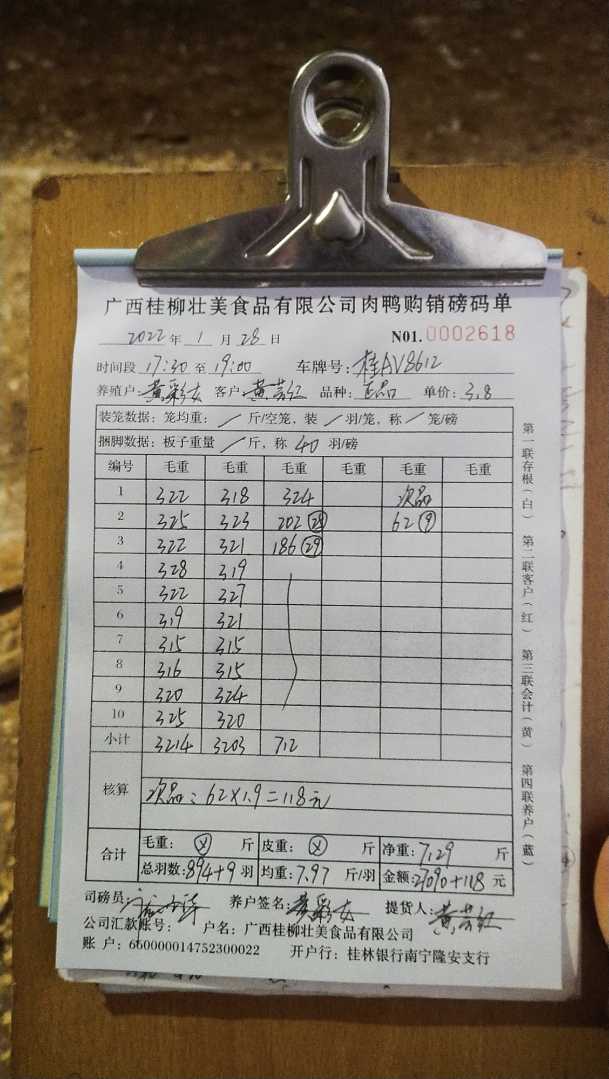 广西桂柳壮美食品有限公司肉鸭购销磅码单
2022年 1 月 28 日 N01.0002618
时间段 17:30 至 19:00 车牌号: 桂AV8612
养殖户: 黄彩女 客户: 品种: 正品 单价: 3.8
装笼数据: 笼均重: / 斤/空笼, 装 / 羽/笼, 称 / 笼/磅
捆脚数据: 板子重量 / 斤, 称 40 羽/磅
编号 毛重 毛重 毛重 毛重 毛重 毛重
1 322 318 324 次品
2 325 323 202 (28) 62 (9)
3 322 321 186 (29)
4 328 319
5 322 327
6 319 321
7 315 315
8 316 315
9 320 324
10 325 320
小计 3214 3203 712
核算 次品: 62×1.9=118元
合计 毛重: 斤 皮重: 斤 净重: 7129 斤
总羽数: 894+9 羽 均重: 7.97 斤/羽 金额: 27090+118 元
司磅员: 养户签名: 黄彩女 提货人:
公司汇款账号: 户名: 广西桂柳壮美食品有限公司
账 户: 660000014752300022 开户行: 桂林银行南宁隆安支行
第一联存根(白) 第二联客户(红) 第三联会计(黄) 第四联养户(蓝)